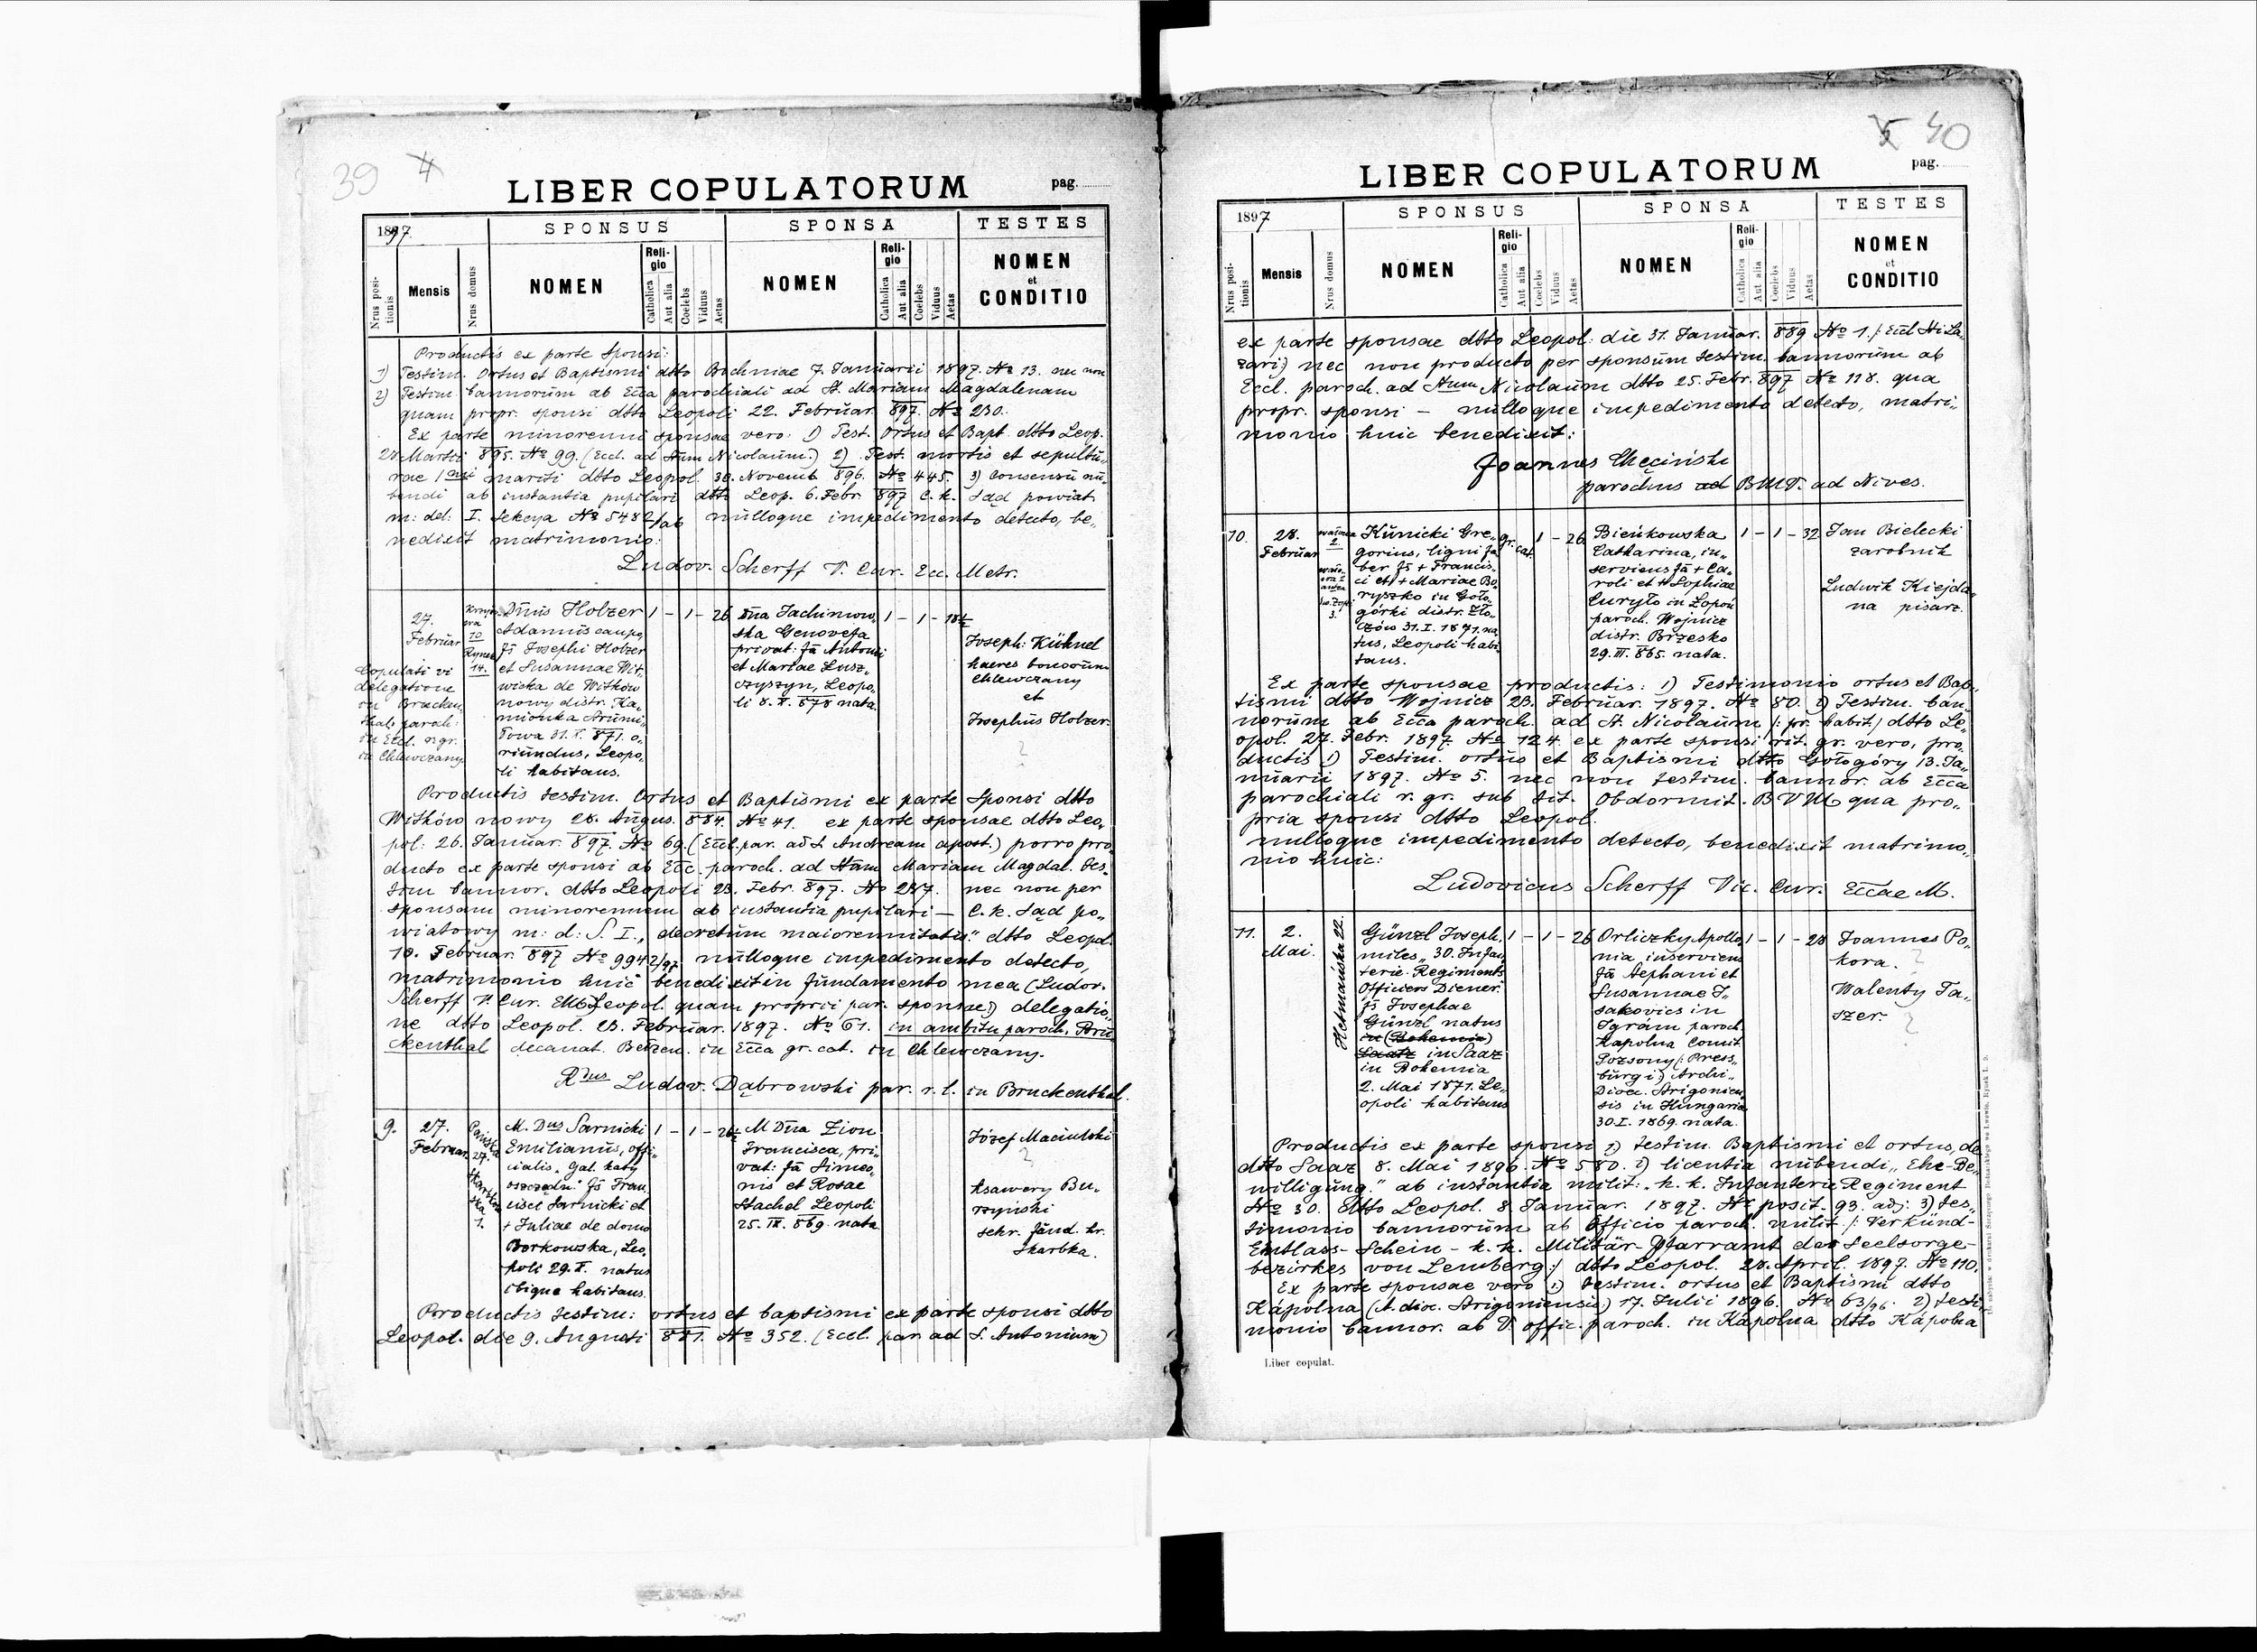 39 4
LIBER COPULATORUM pag.
1897
SPONSUS SPONSA TESTES
Nrus positionis
Mensis
Nrus domus
NOMEN
Religio
Catholica
Aut alia
Coelebs
Viduus
Aetas
NOMEN
Religio
Catholica
Aut alia
Coelebs
Viduus
Aetas
NOMEN
et
CONDITIO
Productis ex parte Sponsi:
1) Testim. Ortus et Baptismi dtto Bochniae 7. Januarii 1897. No 13. nec non
2) Testim bannorum ab Ecca parochiali ad St. Mariam Magdalenam
quam propr. sponsi dtto Leopoli 22. Februar. 897. No 230.
Ex parte minorenni sponsae vero: 1) Test. Ortus et Bapt. dtto Leop.
28 Martii 895. No 99. (Eccl. ad Stum Nicolaum.) 2) Test. mortis et sepultu„
rae 1 mariti dtto Leopol. 30. Novemb 896. No 445. 3) consensu nu„
bendi ab instantia pupilari dtto Leop. 6. Febr. 897 C. k. Sąd powiat
m: del: I. Sekcya No 5482/ab nulloque impedimento detecto, be„
nedixit matrimonio:
Ludov. Scherff V. Cur. Ecc. Metr.
27.
Februar
10
Rynek
14.
Copulati vi
delegatione
in Brucken
thal paroch
in Eccl. r. gr.
in Chlewczany
Dnus Holzer
Adamus caupo,
fs Josephi Holzer
et Susannae Wit„
wicka de Witków
nowy distr. Ka„
mionka Strumi„
łowa 31. X. 871. o„
riundus, Leopo„
li habitans.
1 – 1 – 26
Dna Jachimow„
ska Genovefa
privat: fa Antonii
et Mariae Lusz„
czyszyn, Leopo„
li 8. X. 878 nata
1 – 1 – 18½
Joseph: Kühnel
haeres bonorum
Chlewczany
et
Josephus Holzer.
?
Productis testim. Ortus et Baptismi ex parte Sponsi dtto
Witków nowy 28. Augus. 884. No 41. ex parte sponsae dtto Leo„
pol: 26. Januar. 897. No 69. (Eccl. par. ad S. Andream apost.) porro pro„
ducto ex parte sponsi ab Ecc. paroch. ad Stam Mariam Magdal. tes„
tim bannor. dtto Leopoli 23. Febr. 897. No 237. nec non per
sponsam minorennem ab instantia pupilari — C. k. Sąd po„
wiatowy m: d: S. I., „decretum maiorennitatis" dtto Leopol.
10. Februar. 897 No 9942/97 nulloque impedimento detecto,
matrimonio huic benedixit in fundamento mea (Ludov.
Scherff V. Cur. EM Leopol. quam proprii par. sponsae:) delegatio„
ne dtto Leopol. 23. Februar. 1897. No 61. in ambitu paroch. Bru
ckenthal decanat. Bełzen. in Ecca gr. cat. in Chlewczany.
Rdus Ludov. Dąbrowski par. r. l. in Bruckenthal.
9.
27.
Februar
Pańska
27.
Skarbkow
ska
1.
M. Dnus Sarnicki
Emilianus, offi„
cialis „Gal. kasy
oszczędn." fs Fran„
cisci Sarnicki et
+ Juliae de domo
Borkowska, Leo„
poli 29. V. natus
ibique habitans.
1 – 1 – 26½
M Dna Zion
Francisca, pri„
vat: fa Simeo„
nis et Rosae
Stachel Leopoli
25. IX. 869. nata
Józef Maciulski
?
Ksawery Bu„
rzyński
sekr. fund. hr.
Skarbka.
Productis testim: ortus et baptismi ex parte sponsi dtto
Leopol. die 9. Augusti 871. No 352. (Eccl. par. ad S. Antonium)
5 40
LIBER COPULATORUM pag.
1897
SPONSUS SPONSA TESTES
Nrus positionis
Mensis
Nrus domus
NOMEN
Religio
Catholica
Aut alia
Coelebs
Viduus
Aetas
NOMEN
Religio
Catholica
Aut alia
Coelebs
Viduus
Aetas
NOMEN
et
CONDITIO
ex parte sponsae dtto Leopol: die 31. Januar. 889 No 1. /: Eccl St. La„
zari) nec non producto per sponsum testim. bannorum ab
Eccl. paroch. ad Stum Nicolaum dtto 25. Febr. 897 No 118. qua
propr. sponsi — nulloque impedimento detecto, matri„
monio huic benedixit:
Joannes Chęciński
parochus ad BMV. ad Nives.
10.
28.
Februar
2
3.
Kunicki Gre„
gorius, ligni fa
ber fs + Francis„
ci et + Mariae Bo„
ryszko in Goło„
górki distr. Zło„
czów 31. I. 1871. na„
tus, Leopoli habi„
tans.
gr. cat.
1 – 26
Bieńkowska
Catharina, in„
serviens fa + Ca„
roli et + Sophiae
Curyło in Łopoń
paroch. Wojnicz
distr. Brzesko
29. III. 865. nata.
1 – 1 – 32
Jan Bielecki
zarobnik
Ludwik Kiejda„
na pisarz.
Ex parte sponsae productis: 1) Testimonio ortus et Bap„
tismi dtto Wojnicz 23. Februar. 1897. No 80. 2) Testim. ban„
norum ab Ecca paroch. ad St. Nicolaum /: pr. habit./ dtto Le„
opol. 27. Febr. 1897 No 124. ex parte sponsi rit. gr. vero, pro„
ductis 1) Testim. ortus et Baptismi dtto Gołogóry 13. Ja„
nuarii 1897. No 5. nec non testim. bannor. ab Ecca
parochiali r. gr. sub tit. Obdormit. B V M qua pro„
pria sponsi dtto Leopol.
nulloque impedimento detecto, benedixit matrimo„
nio huic:
Ludovicus Scherff Vic. Cur. Eccae M.
11.
2.
Mai.
Hetmańska 22.
Günzl Joseph,
miles „30. Infan„
terie Regiments
Officiers Diener.
fs Josephae
Günzl natus
in (Bohemia)
Saatz in Saaz
in Bohemia
2. Mai 1871. Le„
opoli habitans
1 – 1 – 26
Orliczky Apollo„
nia inserviens
fa Stephani et
Susannae I„
sakovics in
Igrám paroch.
Kápolna Comit.
Pozsony (: Press„
burg :) Archi„
Dioec. Strigonien„
sis in Hungaria
30. I. 1869. nata.
1 – 1 – 28
Joannes Po„
kora. ?
Walenty Ta„
szer.
?
Productis ex parte sponsi 1) testim. Baptismi et ortus, de
dtto Saaz 8. Mai 1896 No 580. 2) licentia nubendi „Ehe-Be„
willigung." ab instantia milit: „k. k. Infanterie Regiment
No 30. dtto Leopol. 8. Januar. 1897. No posit. 93. adj: 3) tes„
timonio bannorum ab Officio paroch. milit. /: Verkünd-
Entlass-Schein - k. k. Militär-Pfarramt des Seelsorge-
bezirkes von Lemberg :/ dtto Leopol. 28. April. 1897. No 110.
Ex parte sponsae vero 1) testim. ortus et Baptismi dtto
Kápolna (A. dioc. Strigoniensis) 17. Julii 1896. No 63/96. 2) testi„
monio bannor. ab V. offic. paroch. in Kápolna dtto Kápolna
Liber copulat.